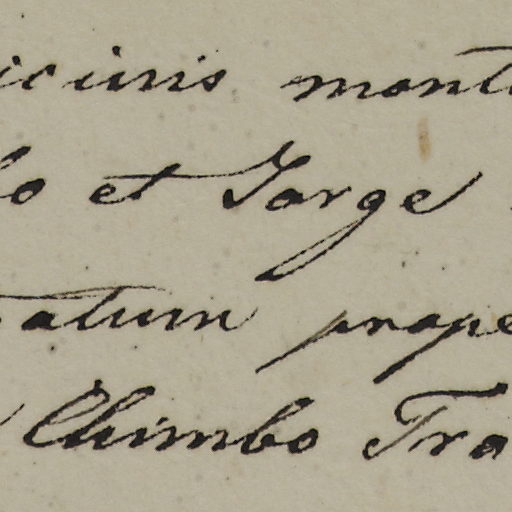 icinis mont
lo et Jorge
atum prope
Chimbo Tra